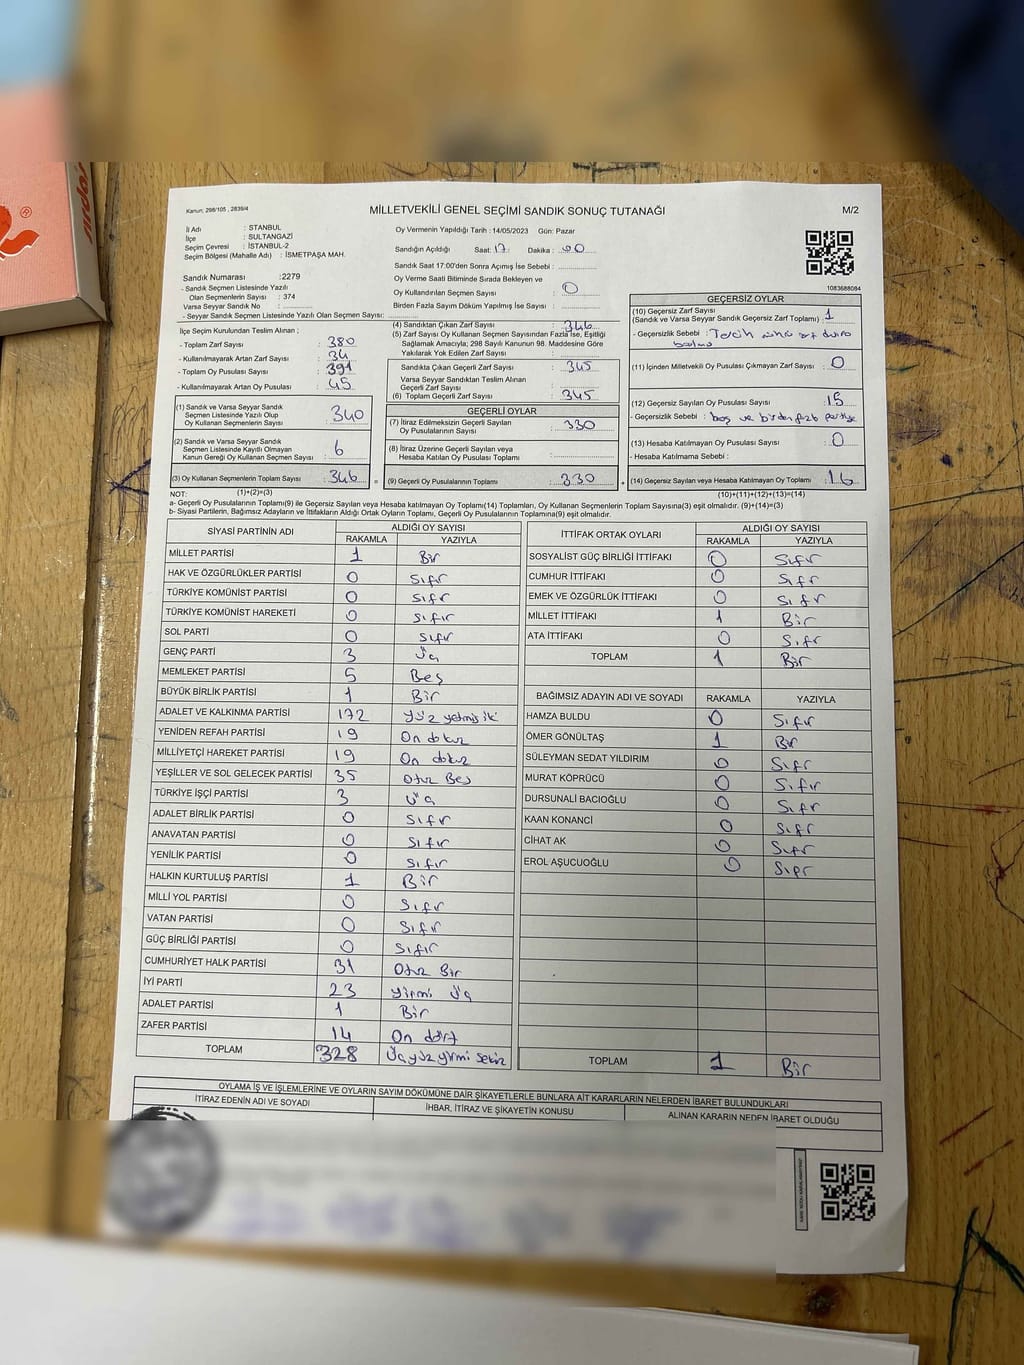 Kanun; 298/105 , 2839/4
MİLLETVEKİLİ GENEL SEÇİMİ SANDIK SONUÇ TUTANAĞI
M/2
İli Adı : STANBUL
İlçe : SULTANGAZİ
Seçim Çevresi : İSTANBUL-2
Seçim Bölgesi (Mahalle Adı) : İSMETPAŞA MAH.
Sandık Numarası :2279
- Sandık Seçmen Listesinde Yazılı
Olan Seçmenlerin Sayısı : 374
Varsa Seyyar Sandık No :
- Seyyar Sandık Seçmen Listesinde Yazılı Olan Seçmen Sayısı:
Oy Vermenin Yapıldığı Tarih : 14/05/2023 Gün: Pazar
Sandığın Açıldığı Saat: 17 Dakika : 00
Sandık Saat 17:00'den Sonra Açımış İse Sebebi :
Oy Verme Saati Bitiminde Sırada Bekleyen ve
Oy Kullandırılan Seçmen Sayısı : 0
Birden Fazla Sayım Döküm Yapılmış İse Sayısı :
1083688084
İlçe Seçim Kurulundan Teslim Alınan ;
- Toplam Zarf Sayısı : 380
- Kullanılmayarak Artan Zarf Sayısı : 34
- Toplam Oy Pusulası Sayısı : 391
- Kullanılmayarak Artan Oy Pusulası : 45
(1) Sandık ve Varsa Seyyar Sandık
Seçmen Listesinde Yazılı Olup
Oy Kullanan Seçmenlerin Sayısı : 340
(2) Sandık ve Varsa Seyyar Sandık
Seçmen Listesinde Kayıtlı Olmayan
Kanun Gereği Oy Kullanan Seçmen Sayısı : 6
(3) Oy Kullanan Seçmenlerin Toplam Sayısı : 346
(1)+(2)=(3)
(4) Sandıktan Çıkan Zarf Sayısı : 346
(5) Zarf Sayısı Oy Kullanan Seçmen Sayısından Fazla İse, Eşitliği
Sağlamak Amacıyla; 298 Sayılı Kanunun 98. Maddesine Göre
Yakılarak Yok Edilen Zarf Sayısı :
Sandıkta Çıkan Geçerli Zarf Sayısı : 345
Varsa Seyyar Sandıktan Teslim Alınan
Geçerli Zarf Sayısı :
(6) Toplam Geçerli Zarf Sayısı : 345
GEÇERLİ OYLAR
(7) İtiraz Edilmeksizin Geçerli Sayılan
Oy Pusulalarının Sayısı : 330
(8) İtiraz Üzerine Geçerli Sayılan veya
Hesaba Katılan Oy Pusulası Toplamı :
(9) Geçerli Oy Pusulalarının Toplamı : 330
GEÇERSİZ OYLAR
(10) Geçersiz Zarf Sayısı
(Sandık ve Varsa Seyyar Sandık Geçersiz Zarf Toplamı) : 1
- Geçersizlik Sebebi : Tercih
(11) İçinden Milletvekili Oy Pusulası Çıkmayan Zarf Sayısı : 0
(12) Geçersiz Sayılan Oy Pusulası Sayısı : 15
- Geçersizlik Sebebi : boş ve birden fazla partiye
(13) Hesaba Katılmayan Oy Pusulası Sayısı : 0
- Hesaba Katılmama Sebebi :
(14) Geçersiz Sayılan veya Hesaba Katılmayan Oy Toplamı : 16
(10)+(11)+(12)+(13)=(14)
NOT:
a- Geçerli Oy Pusulalarının Toplamı(9) ile Geçersiz Sayılan veya Hesaba katılmayan Oy Toplamı(14) Toplamları, Oy Kullanan Seçmenlerin Toplam Sayısına(3) eşit olmalıdır. (9)+(14)=(3)
b- Siyasi Partilerin, Bağımsız Adayların ve İttifakların Aldığı Ortak Oyların Toplamı, Geçerli Oy Pusulalarının Toplamına(9) eşit olmalıdır.
SİYASİ PARTİNİN ADI ALDIĞI OY SAYISI
RAKAMLA YAZIYLA
MİLLET PARTİSİ 1 Bir
HAK VE ÖZGÜRLÜKLER PARTİSİ 0 Sıfır
TÜRKİYE KOMÜNİST PARTİSİ 0 Sıfır
TÜRKİYE KOMÜNİST HAREKETİ 0 Sıfır
SOL PARTİ 0 Sıfır
GENÇ PARTİ 3 Üç
MEMLEKET PARTİSİ 5 Beş
BÜYÜK BİRLİK PARTİSİ 1 Bir
ADALET VE KALKINMA PARTİSİ 172 Yüz yetmiş iki
YENİDEN REFAH PARTİSİ 19 On dokuz
MİLLİYETÇİ HAREKET PARTİSİ 19 On dokuz
YEŞİLLER VE SOL GELECEK PARTİSİ 35 Otuz Beş
TÜRKİYE İŞÇİ PARTİSİ 3 Üç
ADALET BİRLİK PARTİSİ 0 Sıfır
ANAVATAN PARTİSİ 0 Sıfır
YENİLİK PARTİSİ 0 Sıfır
HALKIN KURTULUŞ PARTİSİ 1 Bir
MİLLİ YOL PARTİSİ 0 Sıfır
VATAN PARTİSİ 0 Sıfır
GÜÇ BİRLİĞİ PARTİSİ 0 Sıfır
CUMHURİYET HALK PARTİSİ 31 Otuz Bir
İYİ PARTİ 23 Yirmi Üç
ADALET PARTİSİ 1 Bir
ZAFER PARTİSİ 14 On dört
TOPLAM 328 Üçyüzyirmi sekiz
İTTİFAK ORTAK OYLARI ALDIĞI OY SAYISI
RAKAMLA YAZIYLA
SOSYALİST GÜÇ BİRLİĞİ İTTİFAKI 0 Sıfır
CUMHUR İTTİFAKI 0 Sıfır
EMEK VE ÖZGÜRLÜK İTTİFAKI 0 Sıfır
MİLLET İTTİFAKI 1 Bir
ATA İTTİFAKI 0 Sıfır
TOPLAM 1 Bir
BAĞIMSIZ ADAYIN ADI VE SOYADI RAKAMLA YAZIYLA
HAMZA BULDU 0 Sıfır
ÖMER GÖNÜLTAŞ 1 Bir
SÜLEYMAN SEDAT YILDIRIM 0 Sıfır
MURAT KÖPRÜCÜ 0 Sıfır
DURSUNALİ BACIOĞLU 0 Sıfır
KAAN KONANCİ 0 Sıfır
CİHAT AK 0 Sıfır
EROL AŞUCUOĞLU 0 Sıfır
TOPLAM 1 Bir
OYLAMA İŞ VE İŞLEMLERİNE VE OYLARIN SAYIM DÖKÜMÜNE DAİR ŞİKAYETLERLE BUNLARA AİT KARARLARIN NELERDEN İBARET BULUNDUKLARI
İTİRAZ EDENİN ADI VE SOYADI
İHBAR, İTİRAZ VE ŞİKAYETİN KONUSU
ALINAN KARARIN NEDEN İBARET OLDUĞU